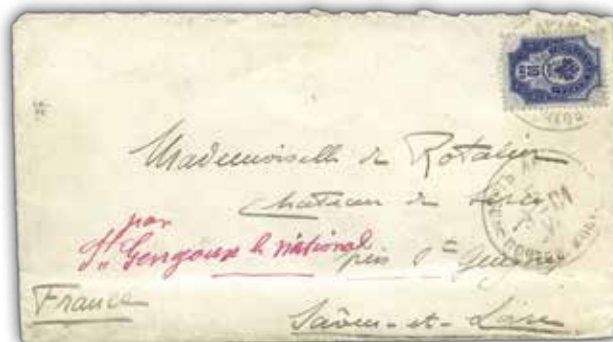 Mademoiselle de Rotalier
Chateau de Sercy
par
St Gengoux le national
près St Gengoux
France
Saône-et-Loire